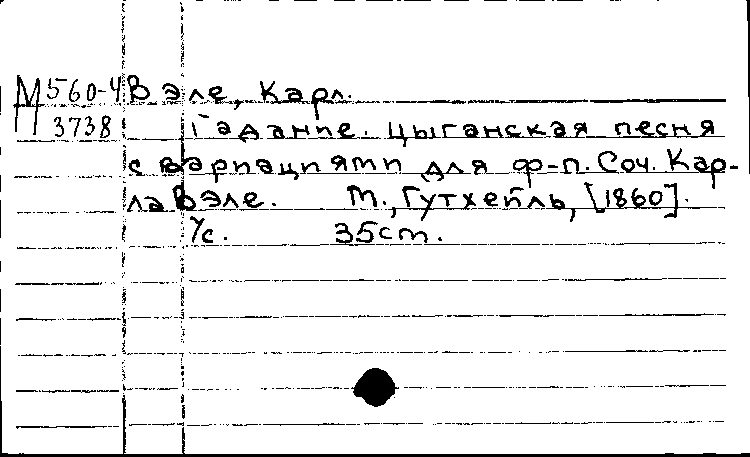 М 560-4 Вэле, Карл.
3738 Гадание. Цыганская песня
с вариациями для ф-п. Соч. Кар-
ла Вэле. М., Гутхейль, [1860].
7с. 35cm.